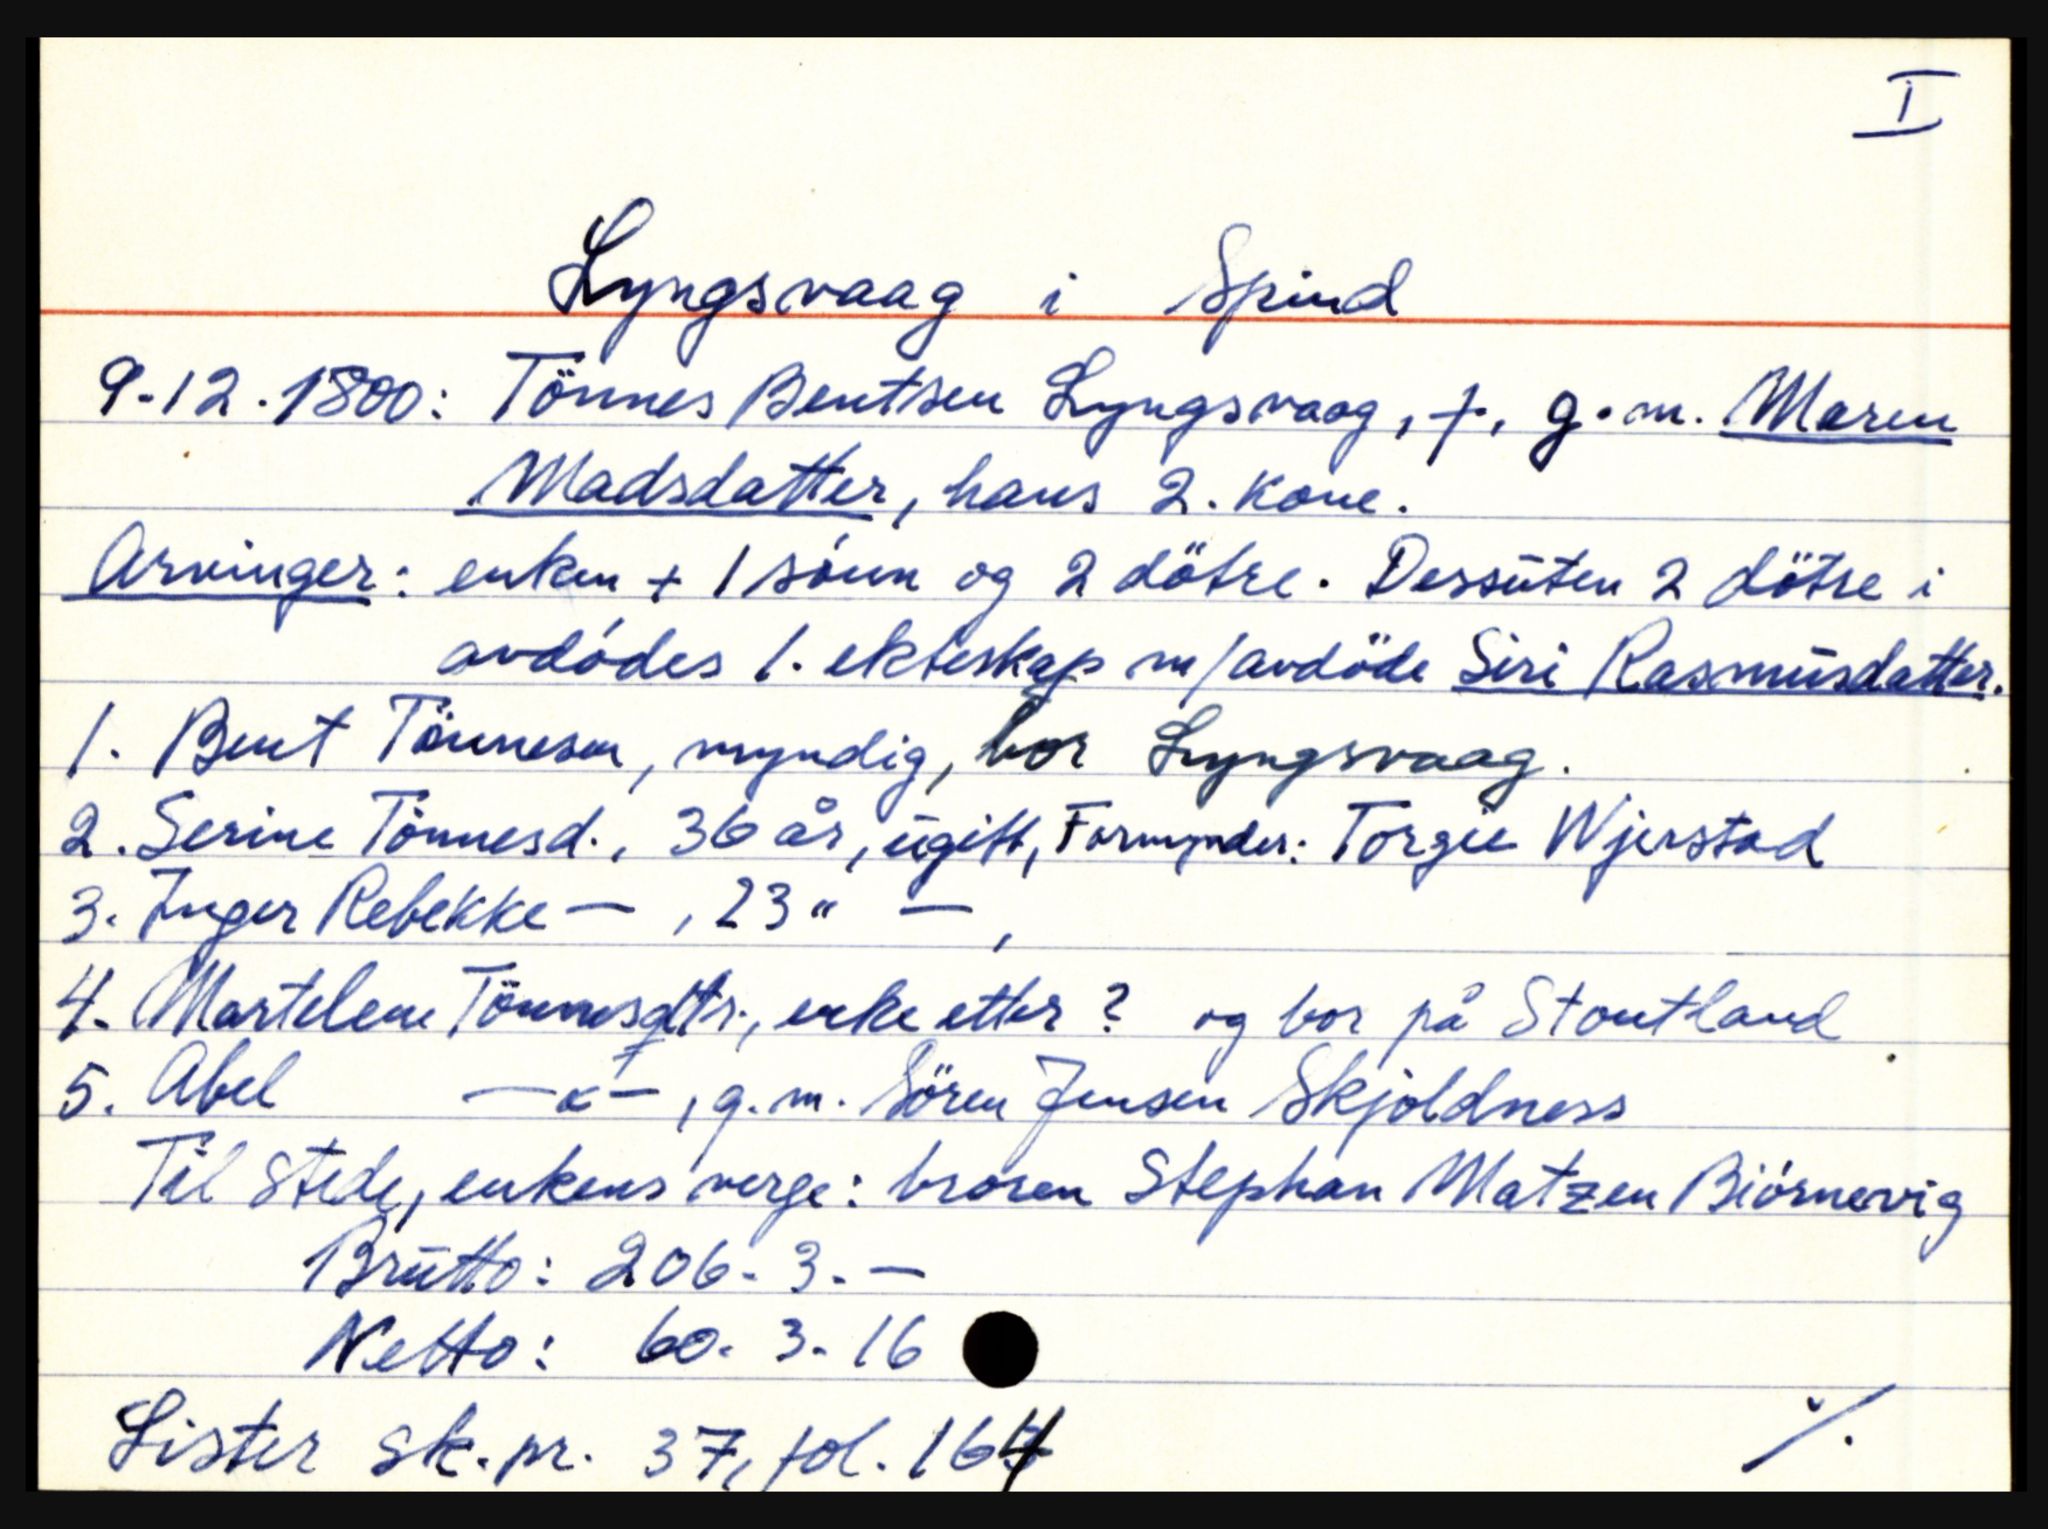 I
Lyngsvaag i Spind
9-12.1800: Tönnes Bentsen Lyngsvaag, †, g.m. Maren
Madsdatter, hans 2. kone.
Arvinger: enken + 1 sönn og 2 dötre. Dessuten 2 dötre i
avdödes 1. ekteskap m/avdöde Siri Rasmusdatter.
1. Bent Tönnesen, myndig, bor Lyngsvaag.
2. Serine Tönnesd., 36 år, ugift, Formynder: Torgie Wjerstad
3. Inger Rebekke — , 23 " — ,
4. Martelene Tönnesdtr., enke etter ? og bor på Stoutland
5. Abel —"— , g.m. Sören Jensen Skjoldness
Til stede, enkens verge: broren Stephan Matzen Biörnevig
Brutto: 206. 3. —
Netto: 60. 3. 16
Lister sk.pr. 37, fol. 164
./.